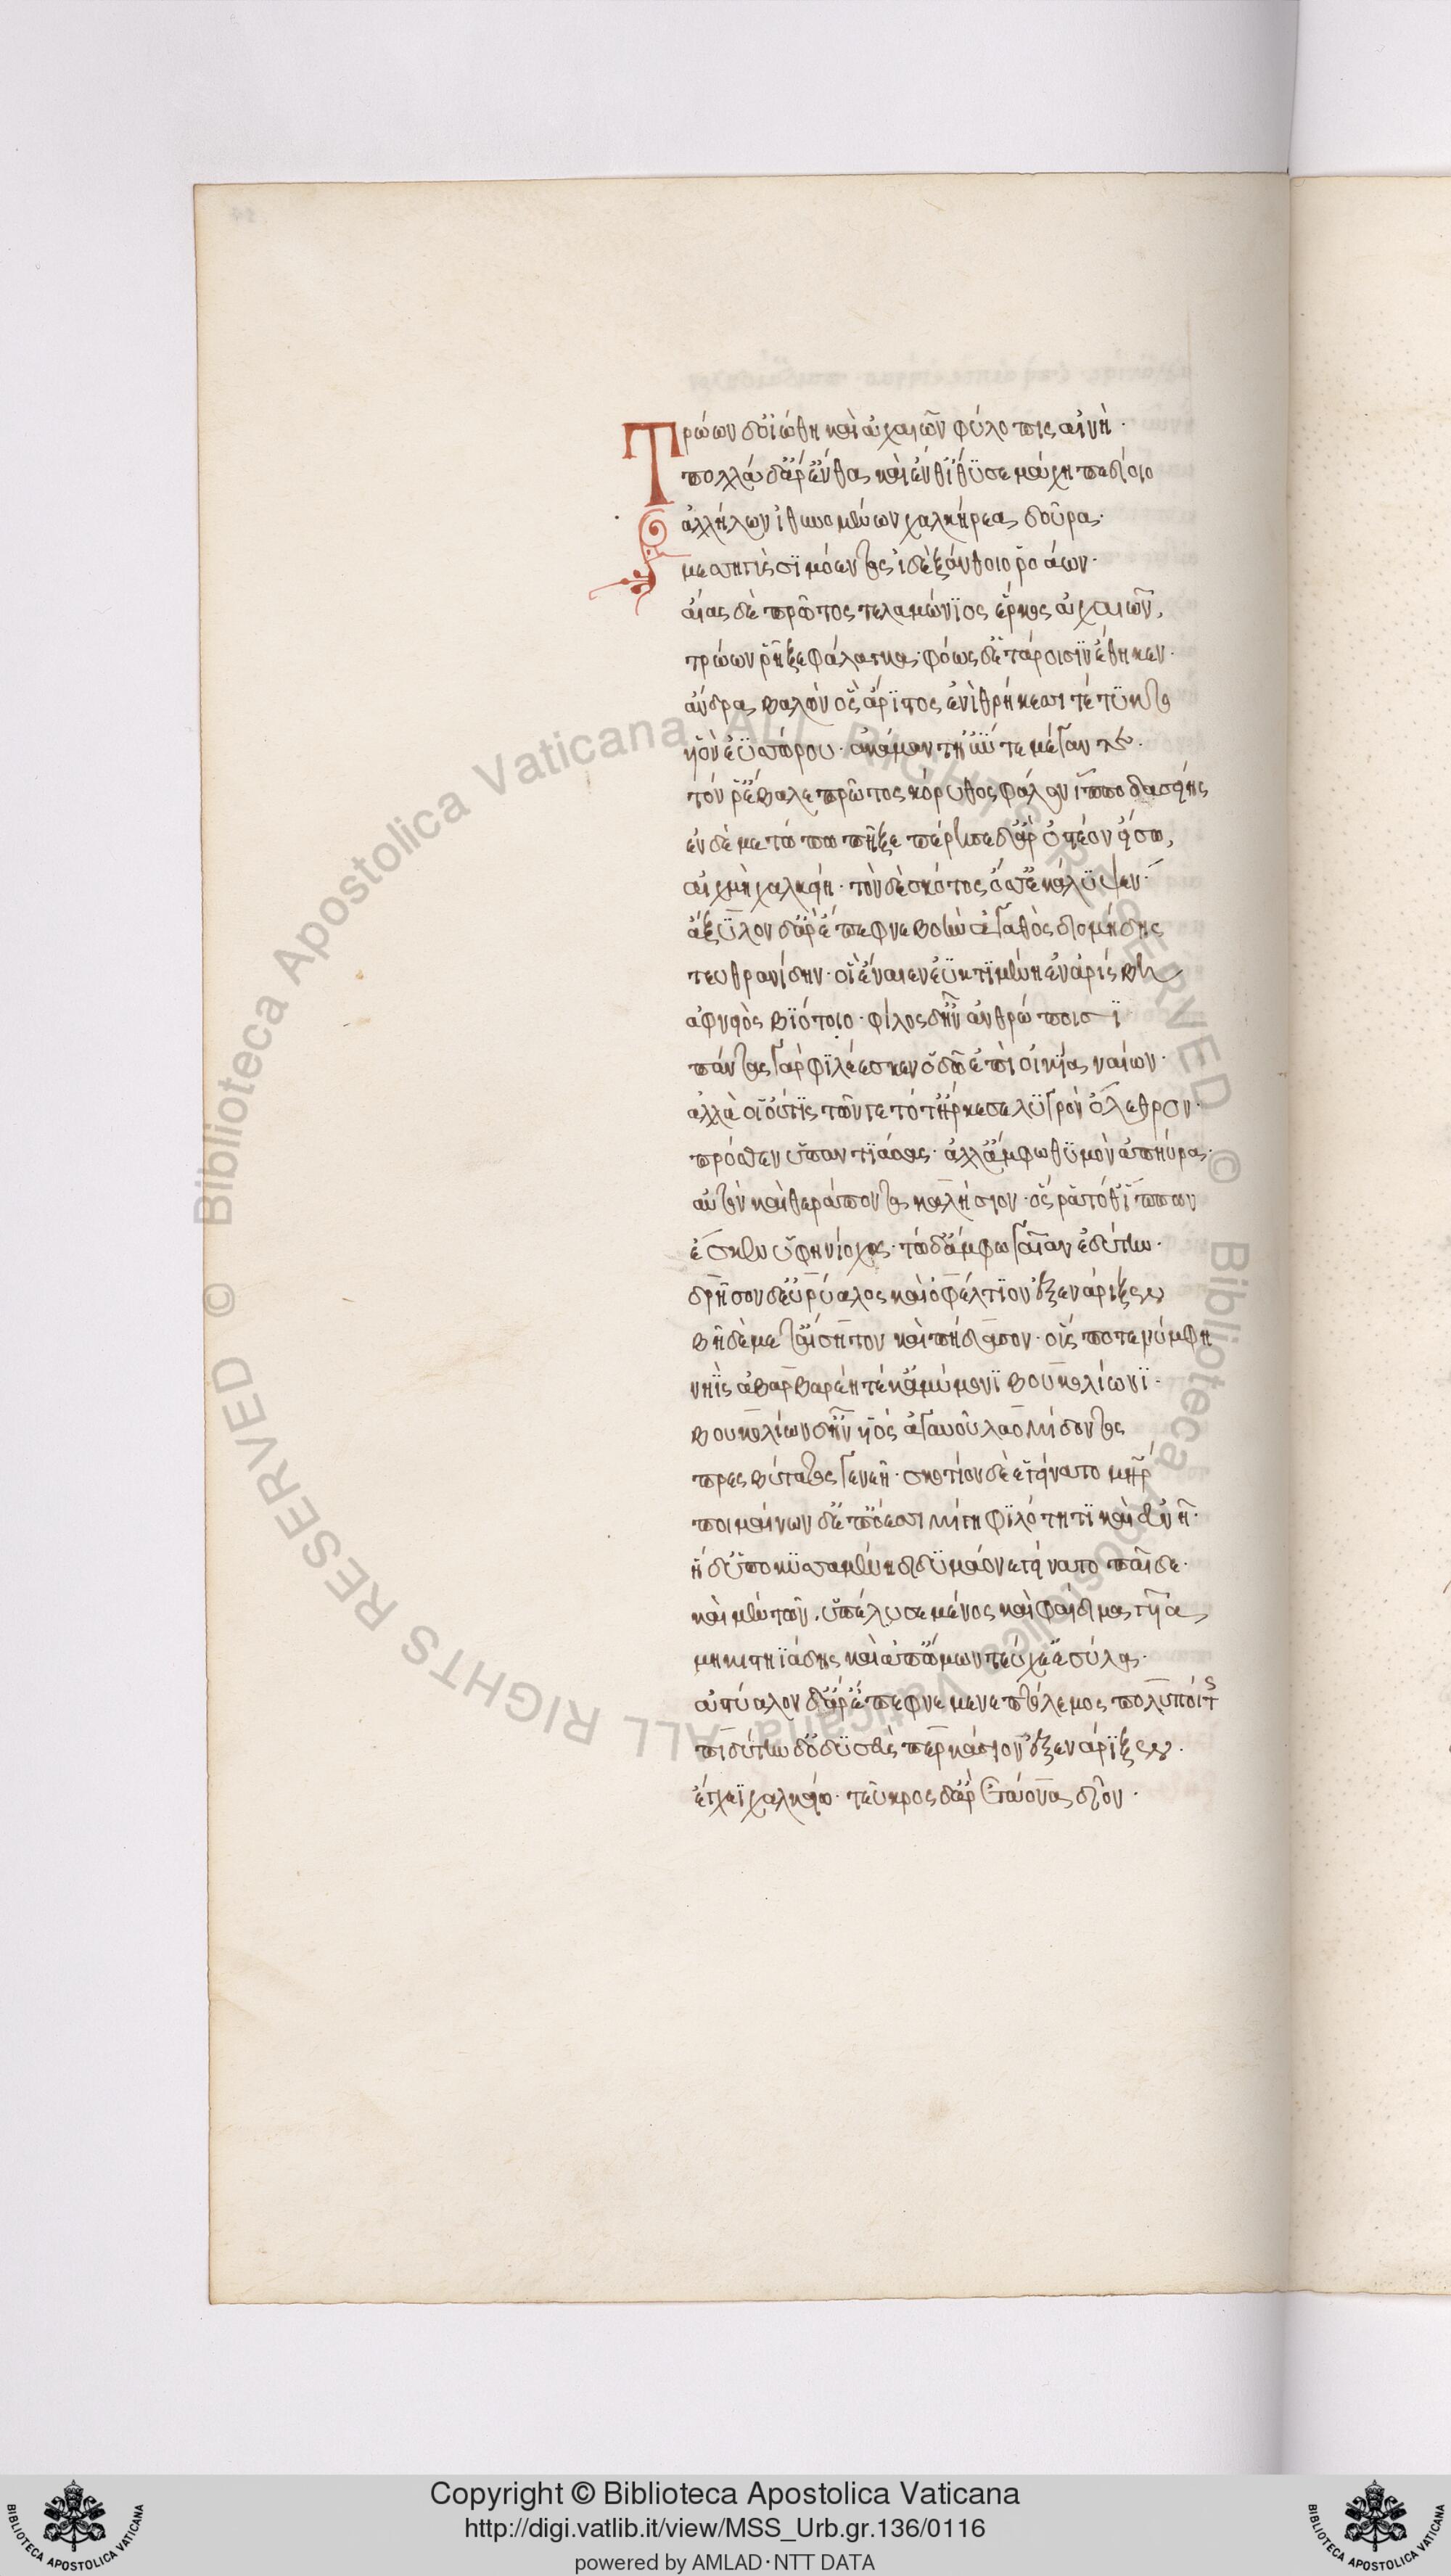 Τρώων δ' οἰώθη καὶ ἀχαιῶν φύλοπις αἰνὴ·
πολλὰ δ' ἄρ' ἔνθα καὶ ἔνθ' ἴθϋσε μάχη πεδίοιο
ἀλλήλων ἰθυνομένων χαλκήρεα δοῦρα·
μεσσηγὺς σϊμόεντος ἰδὲ ξάνθοιο ῥοάων·
αἴας δὲ πρῶτος τελαμώνϊος ἕρκος ἀχαιῶν,
τρώων ῥῆξε φάλαγγα· φόως δ' ἑτάροισϊν ἔθηκεν·
ἄνδρα βαλὼν ὃς ἄρϊστος ἐνὶ θρήκεσσι τέτϋκτο
υἱὸν ἐϋσσώρου· ἀκάμαντ' ἠΰν τε μέγαν τε·
τόν ῥ' ἔβαλε πρῶτος κόρυθος φάλον ἱπποδασείης
ἐν δὲ μετώπω πῆξε πέρησε δ' ἄρ' ὀστέον εἴσω,
αἰχμὴ χαλκείη· τὸν δὲ σκότος ὄσσ' ἐκάλϋψεν·
ἄξϋλον δ' ἄρ' ἔπεφνε βοὴν ἀγαθὸς διομήδης
τευθρανίδην· ὃς ἔναιεν ἐϋκτϊμένη ἐν ἀρίσβη
ἀφνειὸς βϊότοιο· φίλος δ' ἦν ἀνθρώποισϊ
πάντας γὰρ φϊλέεσκεν ὁδῶ ἔπι οἰκία ναίων·
ἀλλὰ οἱ οὔτϊς τῶν γε τότ' ἤρκεσε λϋγρὸν ὄλεθρον·
πρόσθεν ὑπαντϊάσας· ἀλλ' ἄμφω θϋμὸν ἀπηύρα·
αὐτὸν καὶ θεράποντα καλήσιον· ὅς ῥα τόθ' ἵππων
ἔσκεν ὑφηνίοχος· τὼ δ' ἄμφω γαῖαν ἐδύτην·
δρῆσον δ' εὐρύαλος καὶ ὀφέλτϊον ἐξενάριξεν
βῆ δὲ μετ' αἴσηπον καὶ πήδασον· οὕς ποτε νύμφη
νηῒς ἀβαρβαρέη τέκ' ἀμύμονϊ βουκολίωνϊ·
βουκολίων δ' ἦν υἱὸς ἀγαυοῦ λαομέδοντος
πρεσβύτατος γενεῆ· σκότιον δὲ ἑ γείνατο μήτηρ
ποιμαίνων δ' ἐπ' ὄεσσι μίγη φϊλότητϊ καὶ εὐνῆ·
ἡ δ' ὑποκϋσσαμένη διδϋμάονε γείνατο παῖδε·
καὶ μὲν τῶν ὑπέλυσε μένος καὶ φαίδιμα γυῖα
μηκιστηϊάδης καὶ ἀπ' ὤμων τεύχε' ἐσύλα·
ἀστύαλον δ' ἄρ' ἔπεφνε μενεπτόλεμος πολυποίτης
πιδύτην δ' ὀδϋσεὺς περκώσιον ἐξενάρϊξεν·
ἔγχεϊ χαλκείω· τεῦκρος δ' ἄρ' ἐτάονα δῖον·
Copyright © Biblioteca Apostolica Vaticana
http://digi.vatlib.it/view/MSS_Urb.gr.136/0116
powered by AMLAD·NTT DATA